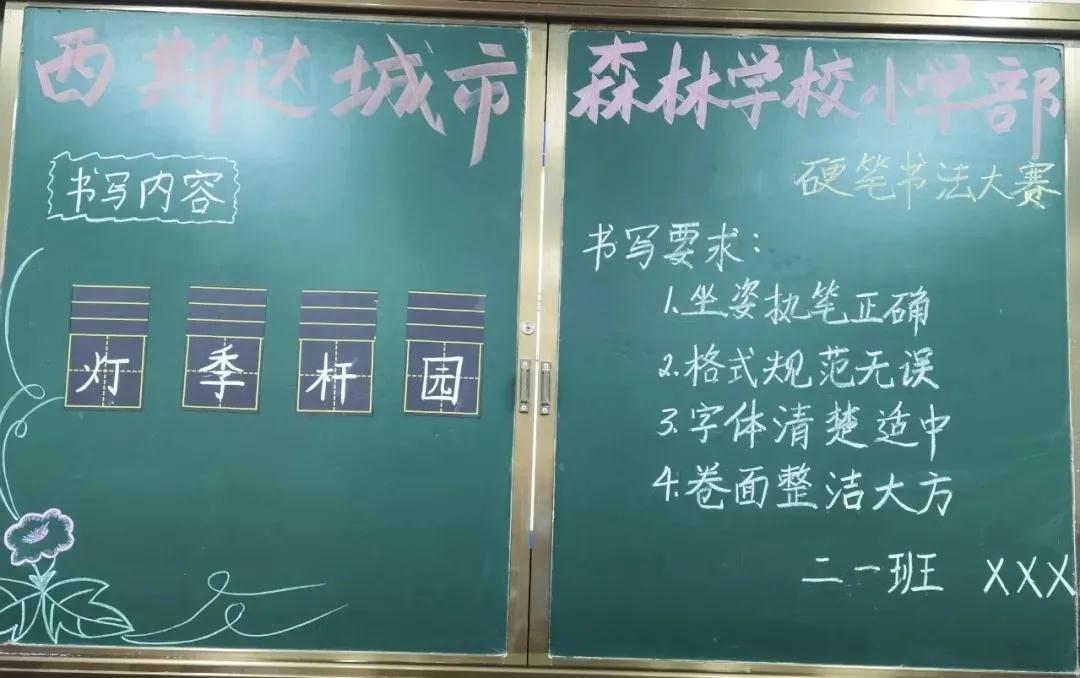 西斯达城市森林学校小学部
硬笔书法大赛
书写内容
灯 季 杆 园
书写要求：
1.坐姿执笔正确
2.格式规范无误
3.字体清楚适中
4.卷面整洁大方
二一班 XXX